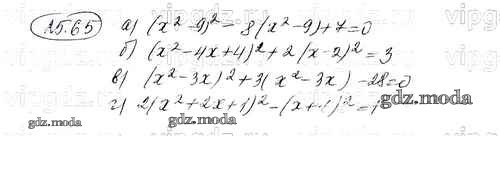 25.65
а) (x² - 9)² - 8(x² - 9) + 7 = 0
б) (x² - 4x + 4)² + 2(x - 2)² = 3
в) (x² - 3x)² + 3(x² - 3x) - 28 = 0
г) 2(x² + 2x + 1)² - (x + 1)² = 1
gdz.moda
gdz.moda
gdz.moda